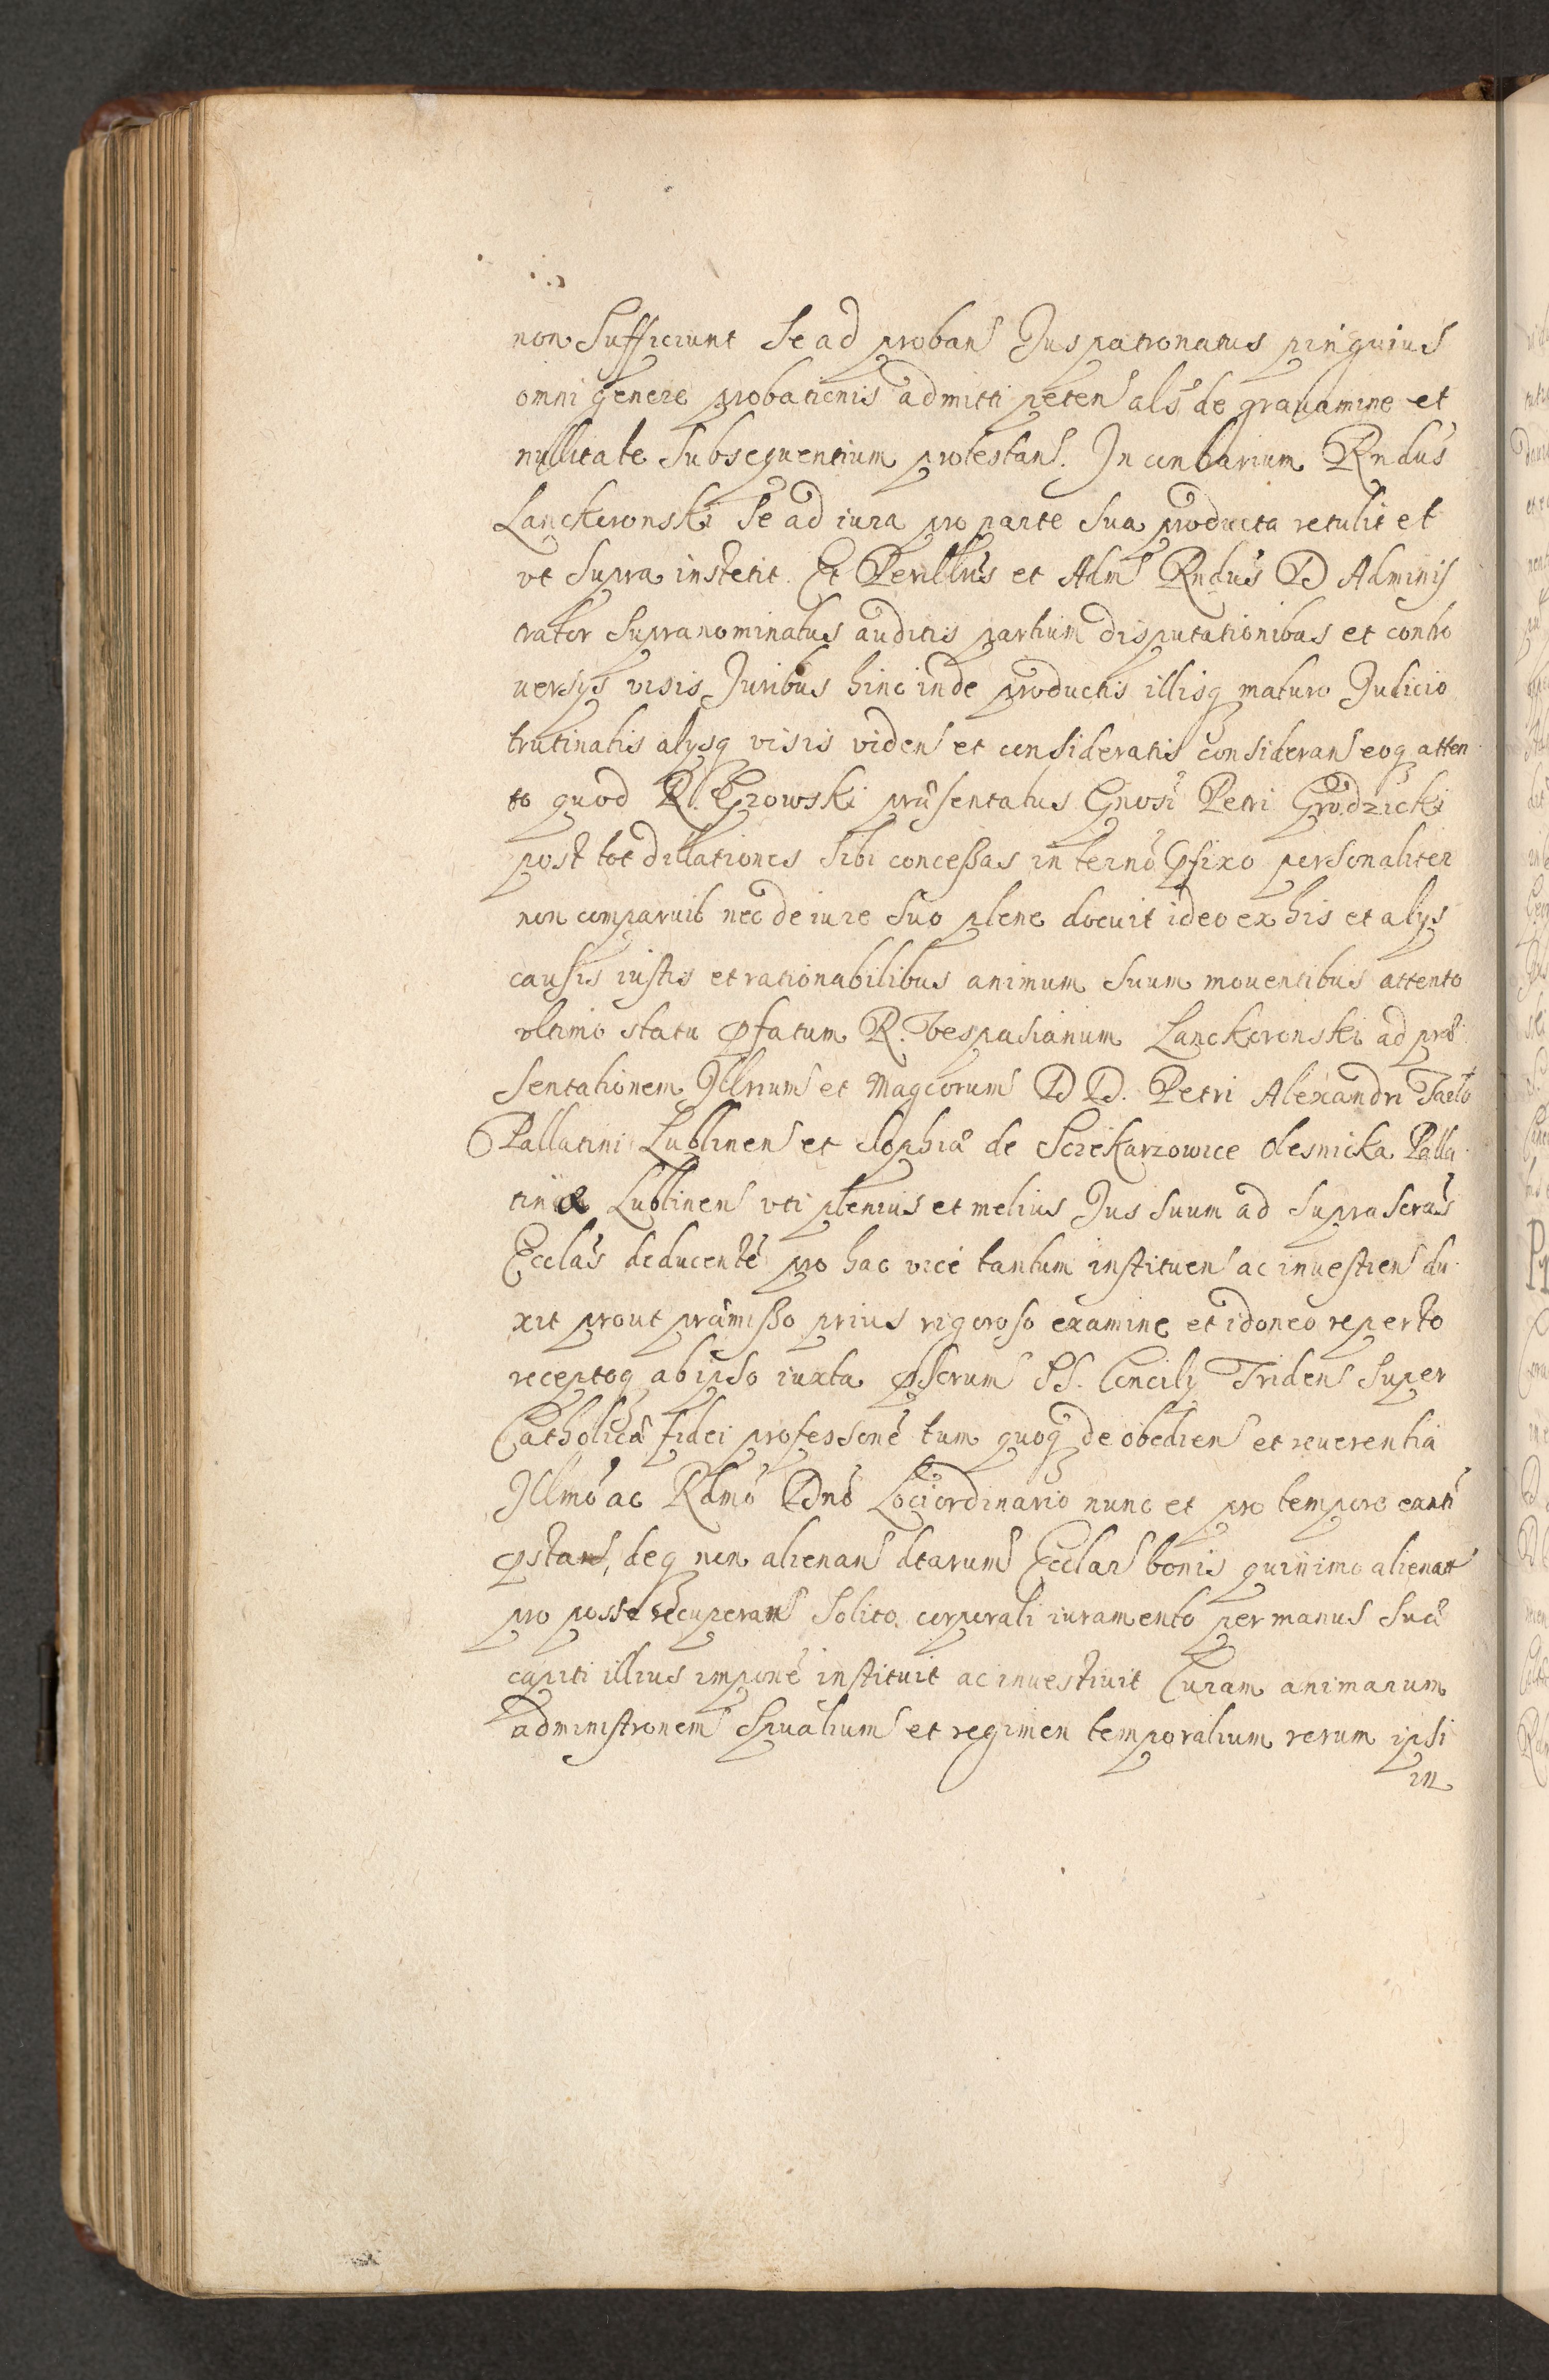 non sufficiunt se ad proban Juspatronatus pinguius
omni genere probationis admitti peten als de gravamine et
nullitate subsequentium protestans. In contrarium Rndus
Lanckoronski se ad iura pro parte sua producta retulit et
ut supra institit. Et Perillris et Adm Rndus D Adminis
trator supranominatus auditis partium disputationibus et contro
uersys visis Juribus hinc inde productis illisq maturo Judicio
trutinatis alysq visis videns et consideratis considerans eoq atten
to quod R. Gzowski præsentatus Gnosi Petri Grodzicki
post tot dillationes sibi concessas in termo pfixo personaliter
non comparuit nec de iure suo plene docuit ideo ex his et alys
causis iustis et rationabilibus animum suum mouentibus attento
vltimo statu pfatum R. Vespasianum Lanckoronski ad præ
sentationem Illrium et Magcorum D D. Petri Alexandri Tarlo
Pallatini Lublinen et Zophiæ de Sciekarzowice Olesnicka Palla
tinæ Lublinen vti plenius et melius Jus suum ad suprascras
Ecclas deducente pro hac vice tantum instituen ac inuestien du
xit prout præmisso prius rigoroso examine et idoneo reperto
receptoq ab ipso iuxta pscrum SS. Concily Triden super
Catholica fidei professione tum quoq de obedien et reuerentia
Illmo ac Rdmo Dno Lociordinario nunc et pro tempore exnti
pstans, deq non alienan dtarum Ecclar bonis quinimo alienat
pro posse recuperans solito corporali iuramento per manus suæ
capiti illius impone instituit ac inuestiuit Curam animarum
administronem spualium et regimen temporalium rerum ipsi
in